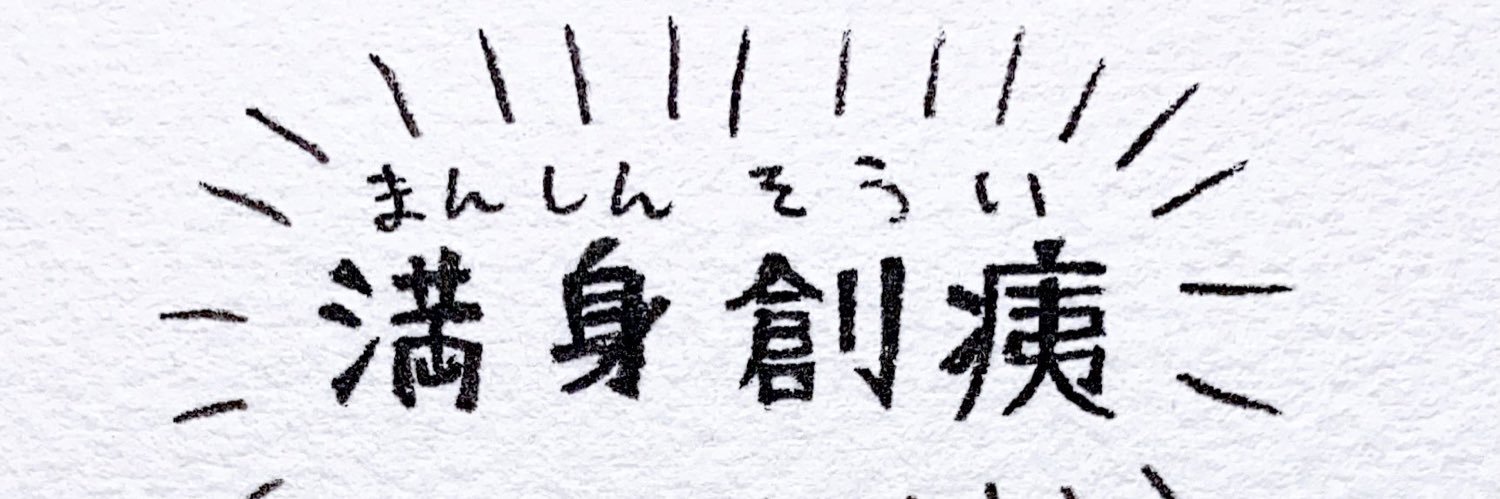 まんしんそうい
満身創痍